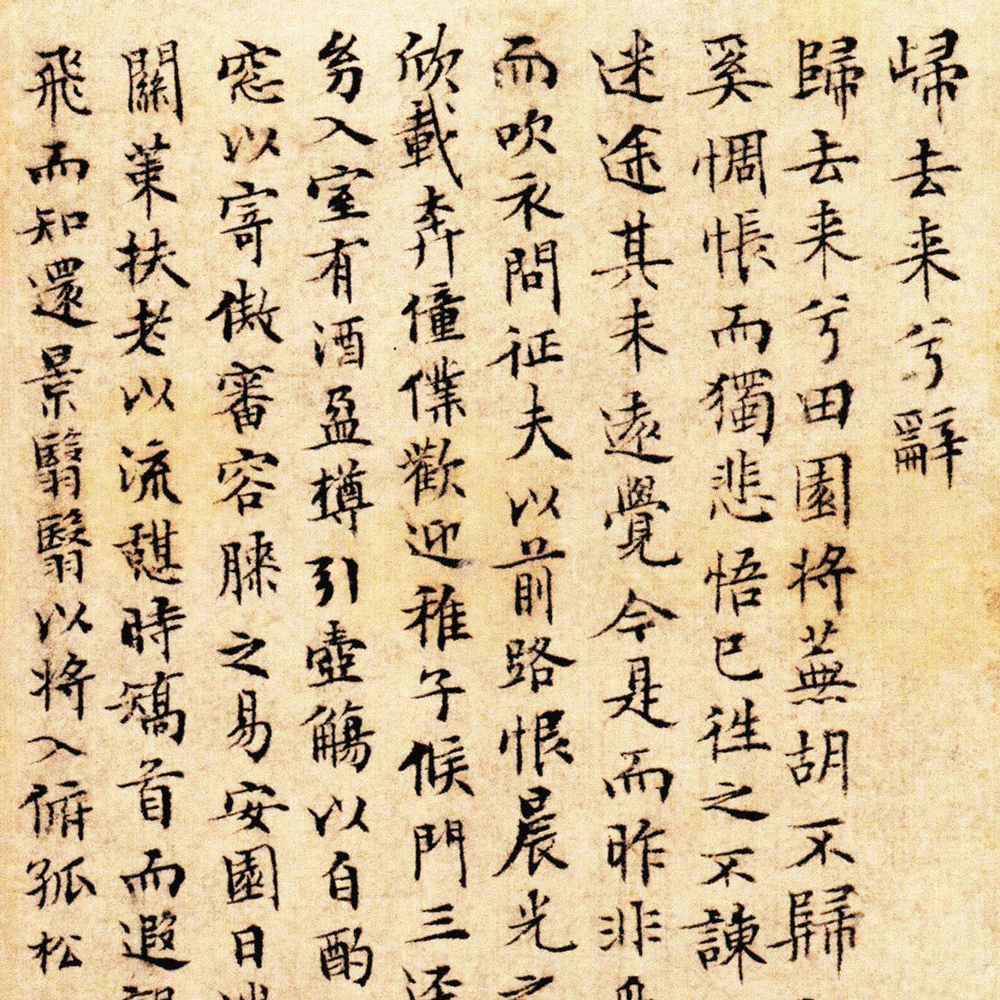 歸去来兮辭
歸去来兮田園将蕪胡不歸
奚惆悵而獨悲悟已往之不諫
迷途其未遠覺今是而昨非
而吹衣問征夫以前路恨晨光之
欣載奔僮僕歡迎稚子候門三
幼入室有酒盈樽引壺觴以自酌
窓以寄傲審容膝之易安園日
關策扶老以流憩時矯首而遐
飛而知還景翳翳以将入俯孤松